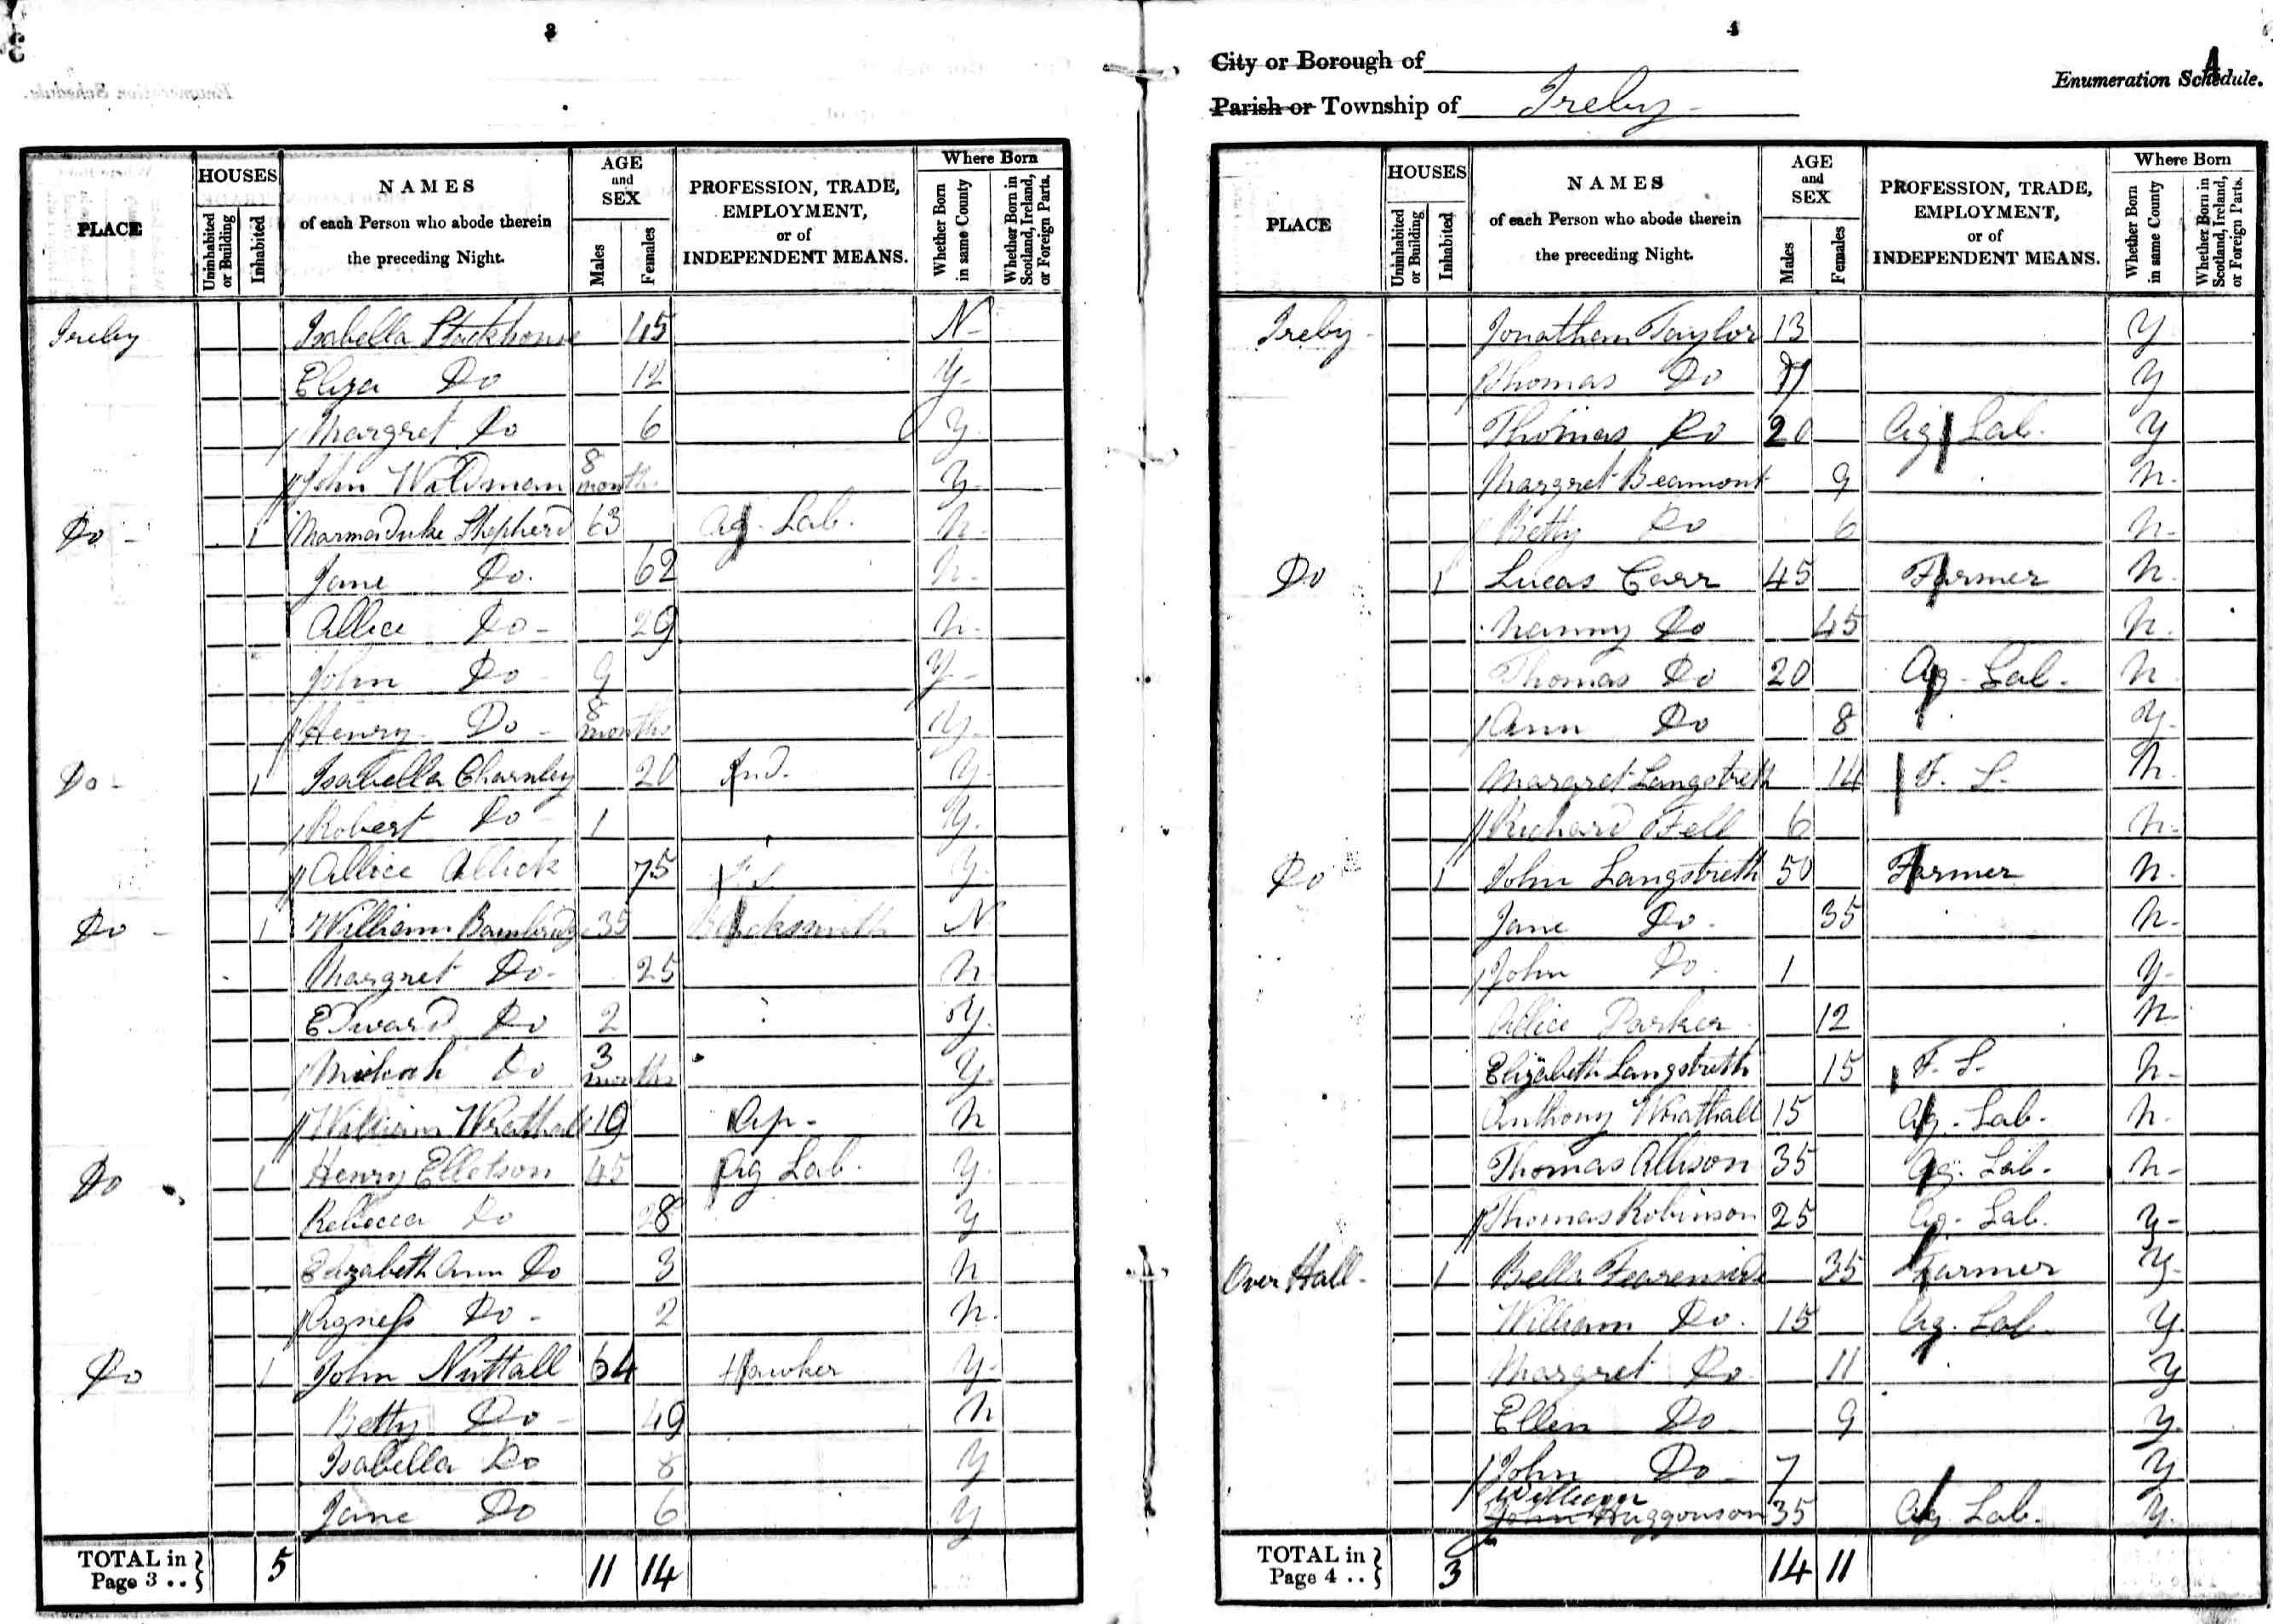 3
PLACE
HOUSES
Uninhabited or Building
Inhabited
NAMES
of each Person who abode therein
the preceding Night.
AGE
and
SEX
Males
Females
PROFESSION, TRADE,
EMPLOYMENT,
or of
INDEPENDENT MEANS.
Where Born
Whether Born in same County
Whether Born in Scotland, Ireland, or Foreign Parts.
Ireby Isabella Stackhouse 45 N
Eliza Do 12 Y
Margret Do 6 Y
John Wildman 8 months Y
Do 1 Marmaduke Shepherd 63 Ag. Lab. N
Jane Do 62 N
Allice Do 29 N
John Do 9 Y
Henry Do 8 months Y
Do 1 Isabella Charnley 20 Ind. Y
Robert Do 1 Y
Allice 75 Y
Do 1 William 35 Blacksmith N
Margret Do 25 N
Edward Do 2 Y
Do 3 months Y
William Wrathall 19 Ap. N
Do 1 Henry Elletson 45 Ag Lab. Y
Rebecca Do 28 Y
Elizabeth Ann Do 3 N
Agness Do 2 N
Do 1 John Nuttall 64 Hawker Y
Betty Do 49 N
Isabella Do 8 Y
Jane Do 6 Y
TOTAL in Page 3 .. 5 11 14
4
City or Borough of
Parish or Township of Ireby
Enumeration Schedule.
PLACE
HOUSES
Uninhabited or Building
Inhabited
NAMES
of each Person who abode therein
the preceding Night.
AGE
and
SEX
Males
Females
PROFESSION, TRADE,
EMPLOYMENT,
or of
INDEPENDENT MEANS.
Where Born
Whether Born in same County
Whether Born in Scotland, Ireland, or Foreign Parts.
Ireby Jonathan Taylor 13 Y
Thomas Do Y
Thomas Do 20 Ag Lab. Y
Margret Beamont 9 N
Betty Do 6 N
Do 1 Lucas Carr 45 Farmer N
Nanny Do 45 N
Thomas Do 20 Ag. Lab. N
Ann Do 8 Y
Margret Langstreth 14 F. S. N
Richard Fell 6 N
Do 1 John Langstreth 50 Farmer N
Jane Do 35 N
John Do 1 Y
Allice Parker 12 N
Elizabeth Langstreth 15 F. S. N
Anthony Wrathall 15 Ag. Lab. N
Thomas Allison 35 Ag. Lab. N
Thomas Robinson 25 Ag. Lab. Y
Over Hall 1 Bella 35 Farmer Y
William Do 15 Ag. Lab. Y
Margret Do 11 Y
Ellen Do 9 Y
John Do 7 Y
William
John Huggonson 35 Ag Lab. Y
TOTAL in Page 4 .. 3 14 11